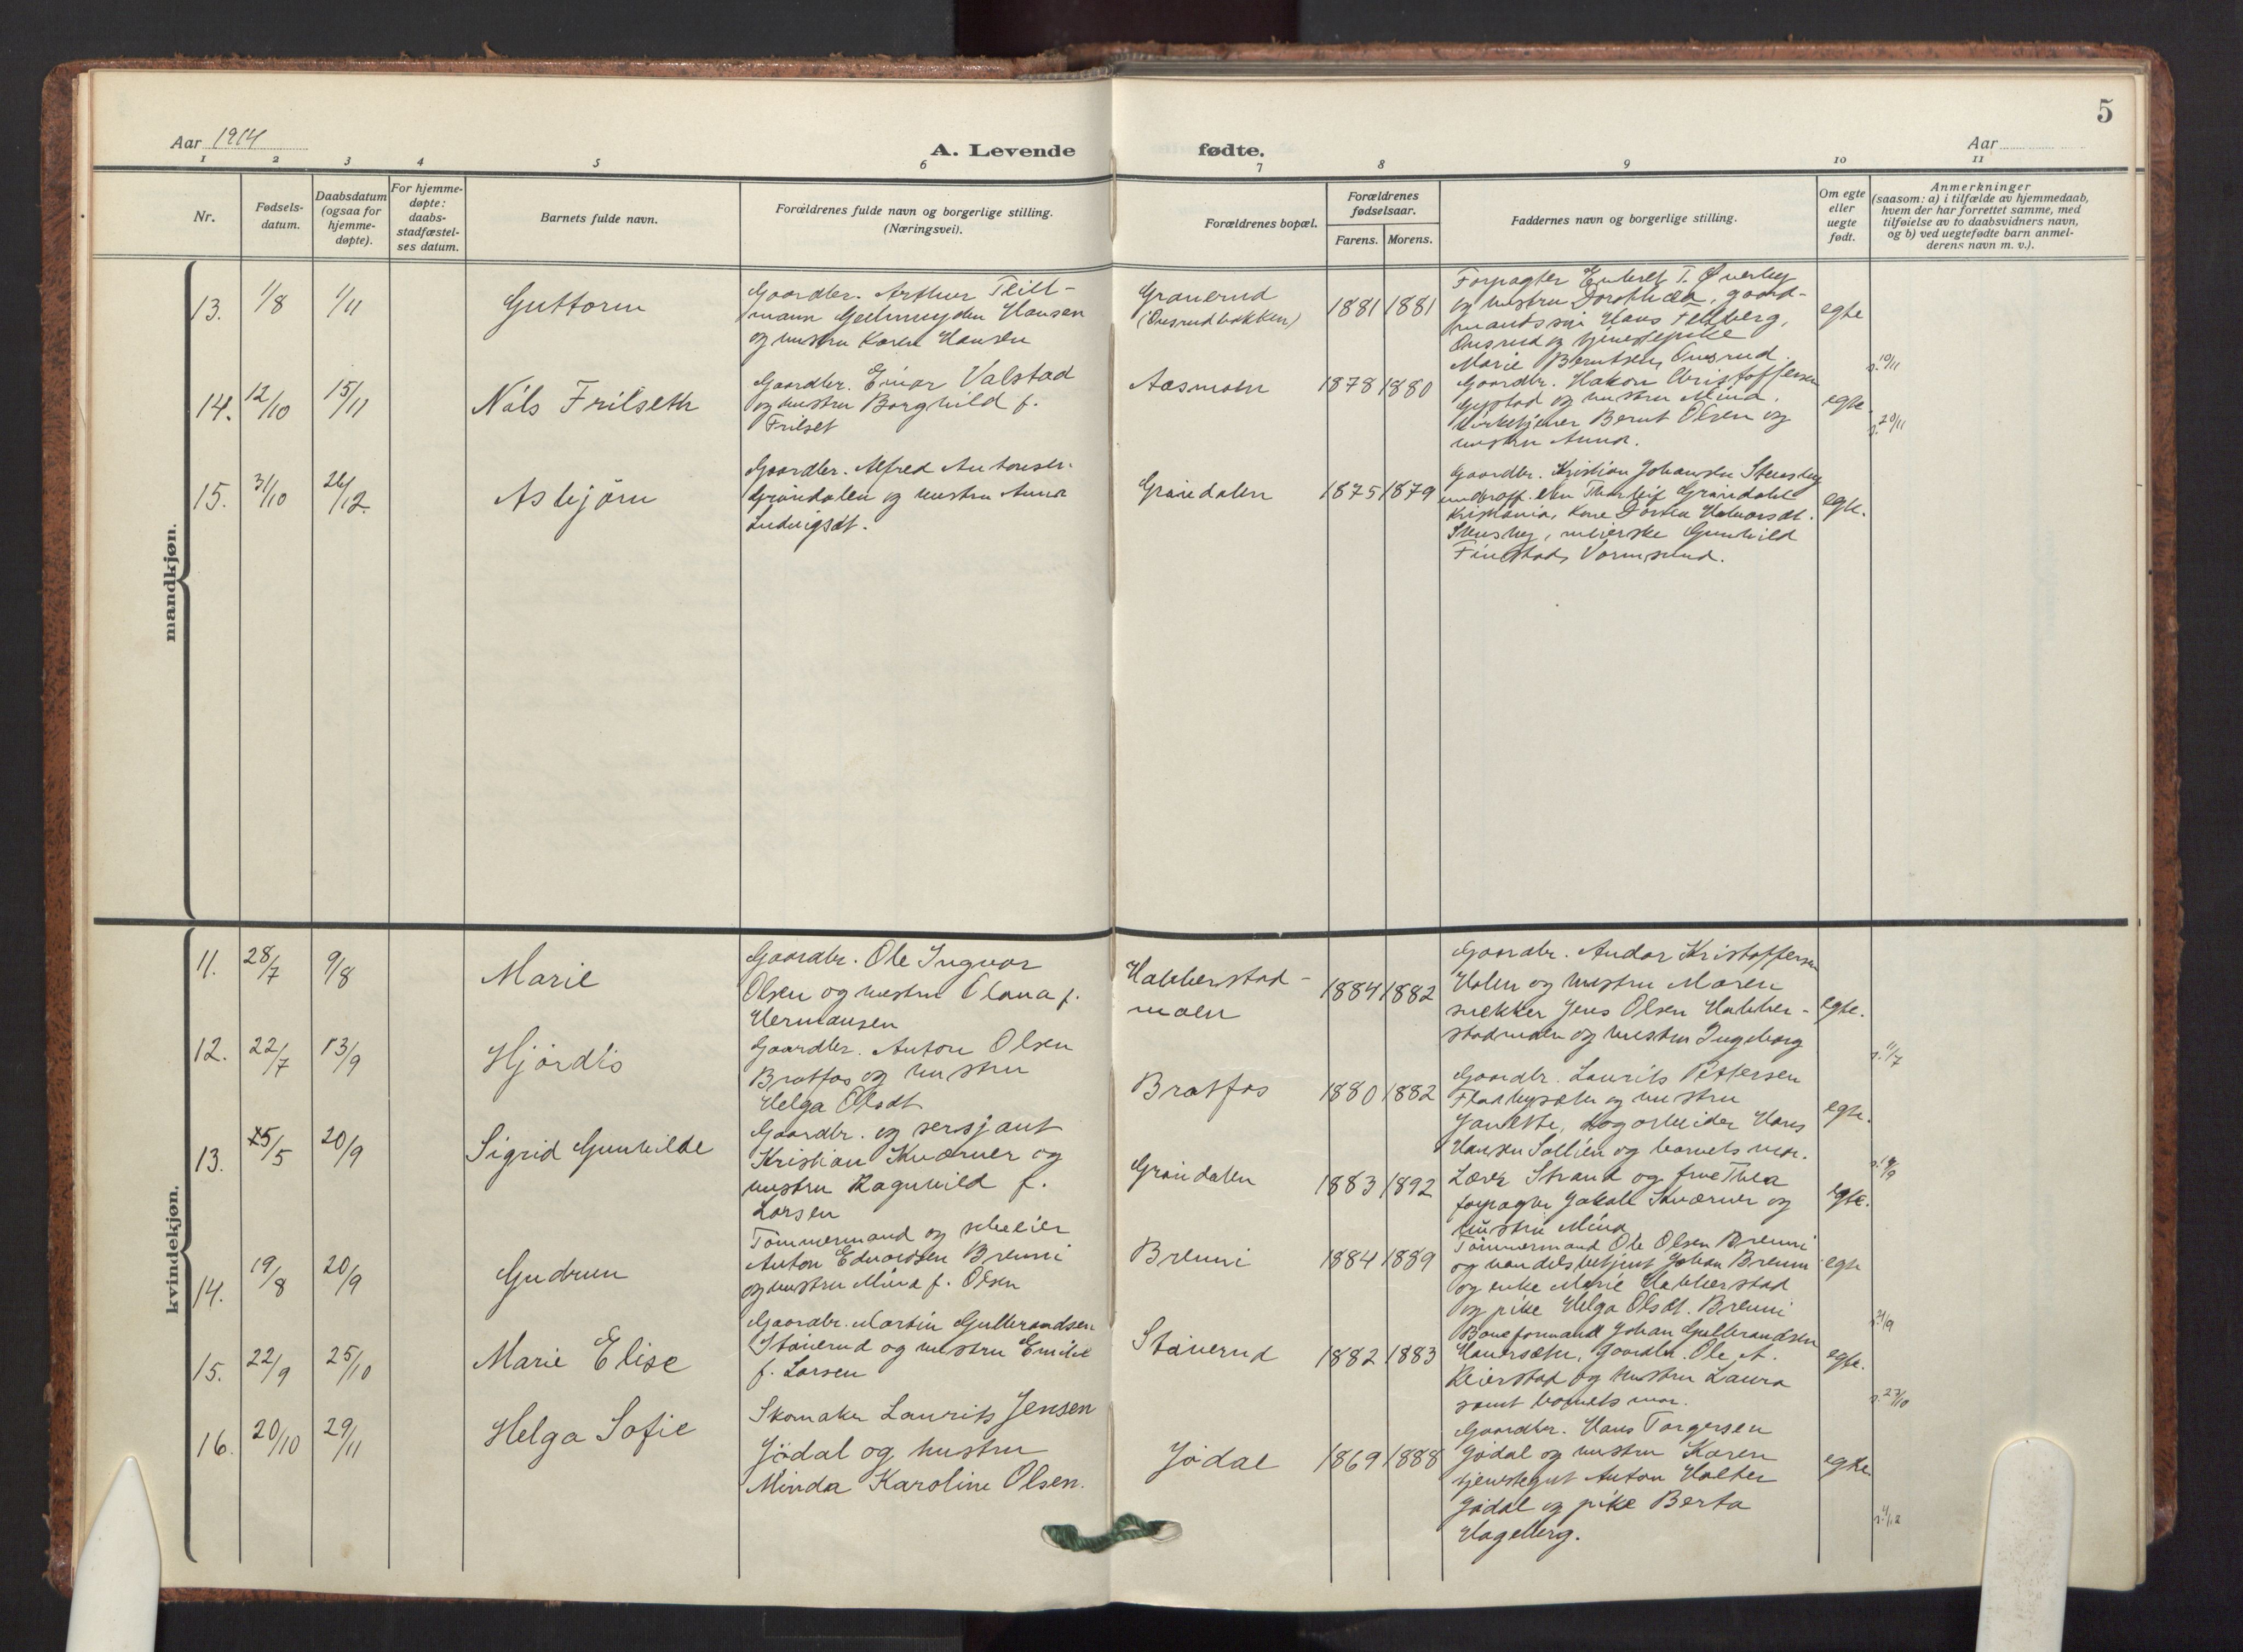 5
Aar 1914
A. Levende fødte.
Aar
1 2 3 4 5 6 7 8 9 10 11
Nr.
Fødsels-
datum.
Daabsdatum
(ogsaa for
hjemme-
døpte).
For hjemme-
døpte:
daabs-
stadfæstel-
ses datum.
Barnets fulde navn.
Forældrenes fulde navn og borgerlige stilling.
(Næringsvei).
Forældrenes bopæl.
Forældrenes
fødselsaar.
Farens. Morens.
Faddernes navn og borgerlige stilling.
Om egte
eller
uegte
født.
Anmerkninger
(saasom: a) i tilfælde av hjemmedaab,
hvem der har forrettet samme, med
tilføielse av to daabsvidners navn,
og b) ved uegtefødte barn anmel-
derens navn m. v.).
mandkjøn.
13. 1/8 1/11
Guttorm
Gaardbr. Arthur
mann Hansen
og hustru Karen Hansen
Granerud
(Onsrudbakken)
1881 1881
Forpagter T. Øverby
og hustru Dorothea, gaard-
mandssøn Hans
Onsrud og tjenestepike
Marie Berntsen, Onsrud.
egte
10/11
14. 12/10 15/11
Nils Frilseth
Gaardbr. Einar Valstad
og hustru Borghild f.
Frilset
Aasmoen
1878 1880
Gaardbr. Hakon Christoffersen
Gystad og hustru Mina.
Kirketjener Bernt Olsen og
hustru Anna.
egte
20/11
15. 31/10 26/12
Asbjörn
Gaardbr. Alfred Antonsen
Gröndalen og hustru Anna
Ludvigsdt.
Gröndalen
1875 1879
Gaardbr. Kristian Johansen Stensby
underoff. elev Thorleif Gröndalen
Kristiania, kone Dortea Halvorsdt.
Stensby, meierske Gunhild
Finstad, Vormsund.
egte.
kvindekjøn.
11. 28/7 9/8
Marie
Gaardbr. Ole Ingvar
Olsen og hustru Olava f.
Hermansen
Habberstad-
moen
1884 1882
Gaardbr. Andor Kristoffersen
Holen og hustru Maren
snekker Jens Olsen Habber-
stadmoen og hustru Ingeborg
egte.
12. 22/7 13/9
Hjördis
Gaardbr. Anton Olsen
Bratfos og hustru
Helga Olsdt.
Bratfos
1880 1882
Gaardbr. Laurits Pettersen
Fladbysæter og hustru
Janette, skogarbeider Hans
Hansen Sollien og barnets mor.
egte.
13. 15/5 20/9
Sigrid Gunhilde
Gaardbr. og sersjant
Kristian Kværner og
hustru Ragnhild f.
Larsen
Gröndalen
1883 1892
Lærer Strand og frue Thea
forpagter Jakob Kværner og
hustru Mina
egte.
14. 19/8 20/9
Gudrun
Tömmermand og selveier
Anton Edvardsen Brenni
og hustru Mina f. Olsen
Brenni
1884 1889
Tömmermand Ole Olsen Brenni
og handelsbetjent Johan Brenni
og enke Marie Habberstad
og pike Helga Olsdt. Brenni
egte
15. 22/9 25/10
Marie Elise
Gaardbr. Martin Gulbrandsen
Stöverud og hustru Emilie
f. Larsen
Stöverud
1882 1883
Baneformand Johan Gulbrandsen
Haversæter, Gaardbr. Ole A.
Beierstad og hustru Laura
samt barnets mor.
egte.
27/10
16. 20/10 29/11
Helga Sofie
Skomaker Laurits Jensen
Jödal og hustru
Minda Karoline Olsen.
Jödal
1869 1888
Gaardbr. Hans Torgersen
Jödal og hustru Karen
tjenstegut Anton Holter
Jödal og pike Berta
Hageberg.
egte